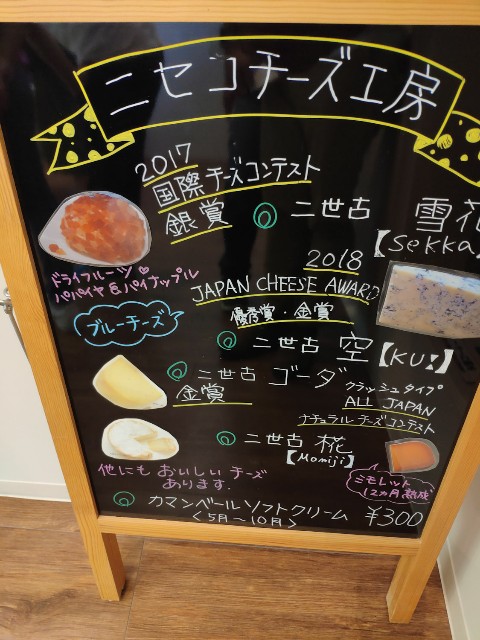 ニセコチーズ工房
2017
国際チーズコンテスト
銀賞
◎ 二世古 雪花
【Sekka】
ドライフルーツ♡
パパイヤ&パイナップル
2018
JAPAN CHEESE AWARD
優秀賞・金賞
ブルーチーズ
◎ 二世古 空【KU:】
◎ 二世古 ゴーダ
クラッシュタイプ
金賞
ALL JAPAN
ナチュラルチーズコンテスト
◎ 二世古 椛
【Momiji】
ミモレット
12ヵ月熟成
他にも おいしい チーズ
あります。
◎ カマンベールソフトクリーム ¥300
<5月〜10月>